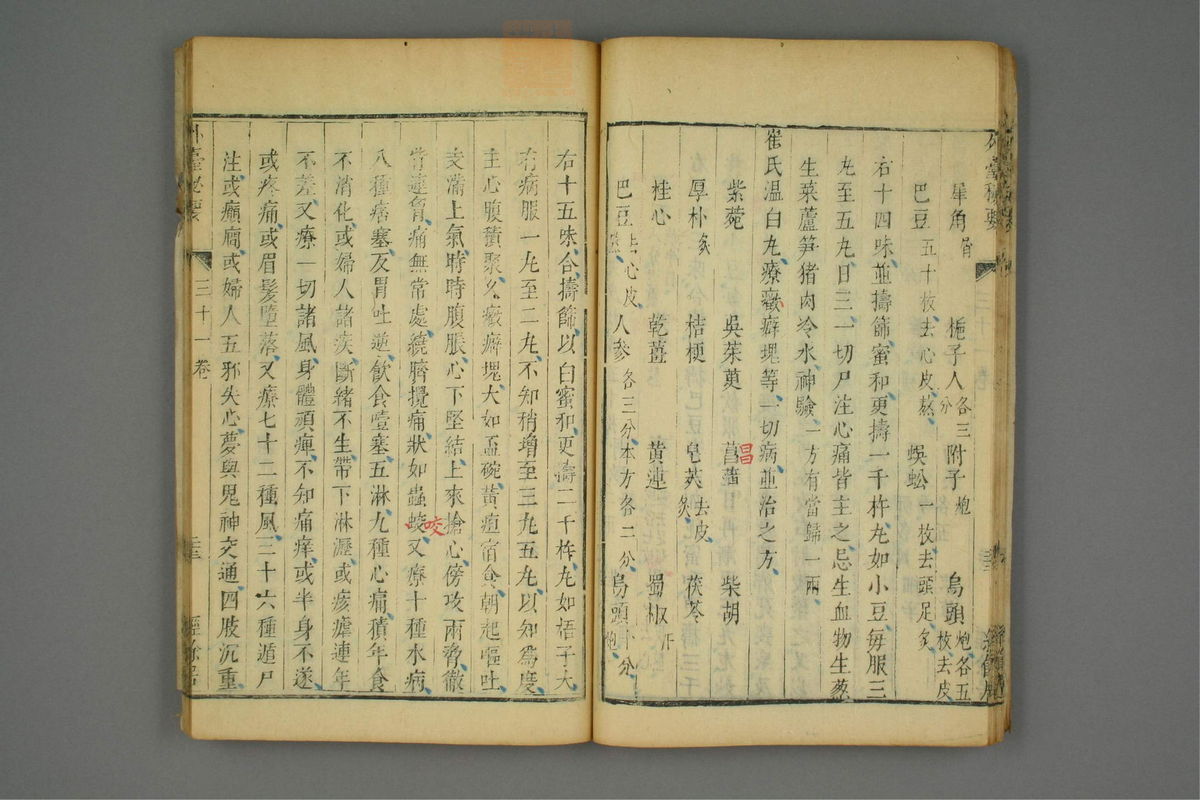 犀角屑 梔子人各三分 附子炮 烏頭炮各五枚去皮
巴豆五十枚去心皮熬 蜈蚣一枚去頭足炙
右十四味並擣篩蜜和更擣一千杵丸如小豆每服三
丸至五丸日三一切尸注心痛皆主之忌生血物生葱
生菜蘆笋猪肉冷水神驗一方有當歸一兩
崔氏温白丸療癥癖塊等一切病並治之方
紫菀 吳茱萸 菖蒲 柴胡
昌
厚朴炙 桔梗 皂莢去皮炙 茯苓
桂心 乾薑 黄連 蜀椒汗
巴豆去心皮熬 人參各三分本方各二分 烏頭十分炮
右十五味合擣篩以白蜜和更擣二千杵丸如梧子大
有病服一丸至二丸不知稍增至三丸五丸以知爲度
主心腹積聚久癥癖塊大如盃碗黄疸宿食朝起嘔吐
支滿上氣時時腹脹心下堅結上來搶心傍攻兩脅徹
背連胷痛無常處繞臍攪痛狀如蟲蛟又療十種水病
咬
八種痞塞反胃吐逆飲食噎塞五淋九種心痛積年食
不消化或婦人諸疾斷緒不生帶下淋瀝或痎瘧連年
不差又療一切諸風身體頑痺不知痛痒或半身不遂
或疼痛或眉髮墮落又療七十二種風三十六種遁尸
注或癲癇或婦人五邪失心夢與鬼神交通四肢沉重
外臺秘要 三十一卷 經餘居